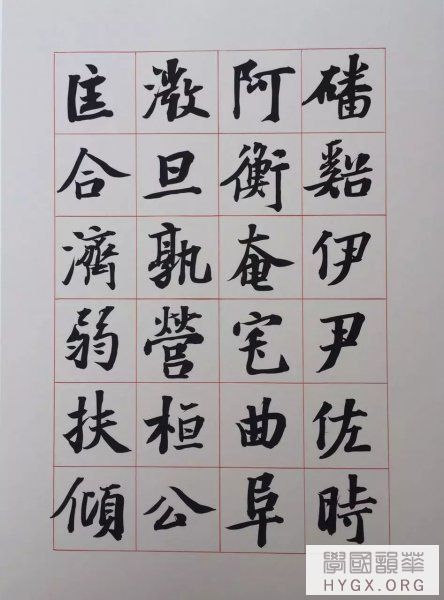 磻谿伊尹佐時
阿衡奄宅曲阜
微旦孰營桓公
匡合濟弱扶傾
學國韻華
HYGX.ORG